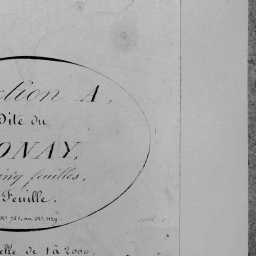 ction A,
Dite du
ONAY,
cinq feuilles,
Feuille.
elle de 1 à 2000.